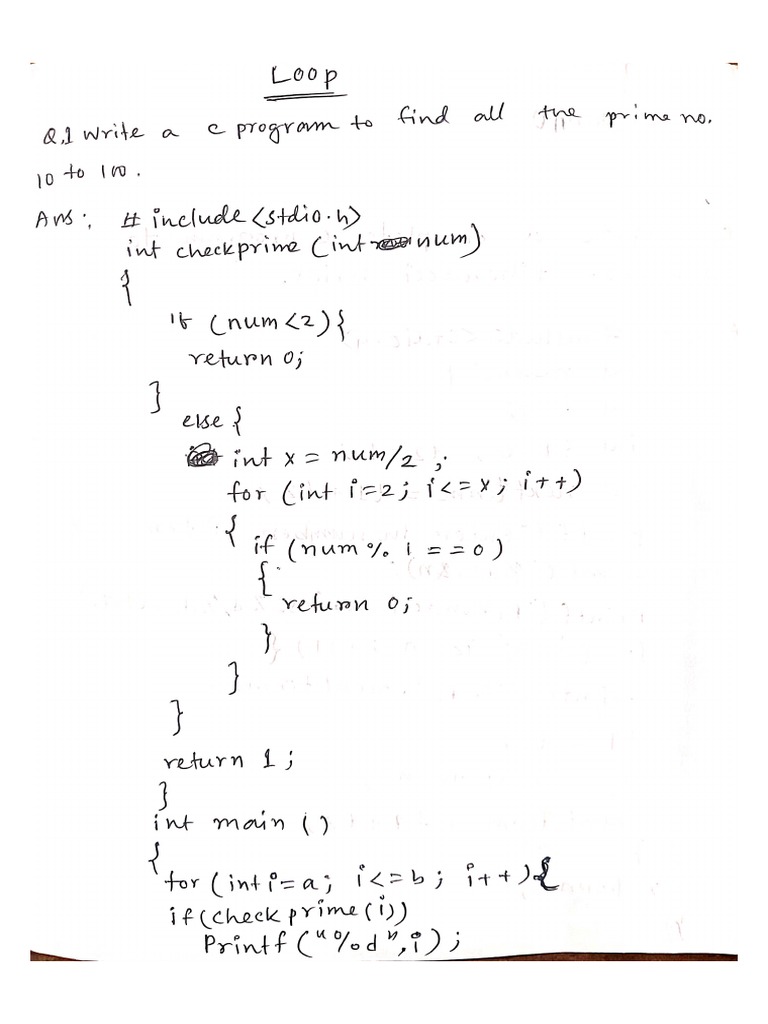 Loop
Q.1 Write a c program to find all the prime no.
10 to 100.
Ans:. # include <stdio.h>
int checkprime (int num)
{
if (num<2){
return 0;
}
else {
int x = num/2 ;
for (int i=2; i<=x; i++)
{
if (num % i ==0)
{
return 0;
}
}
}
return 1;
}
int main ()
{
for (int i=a; i<=b; i++){
if(checkprime(i))
Printf ("%d",i);